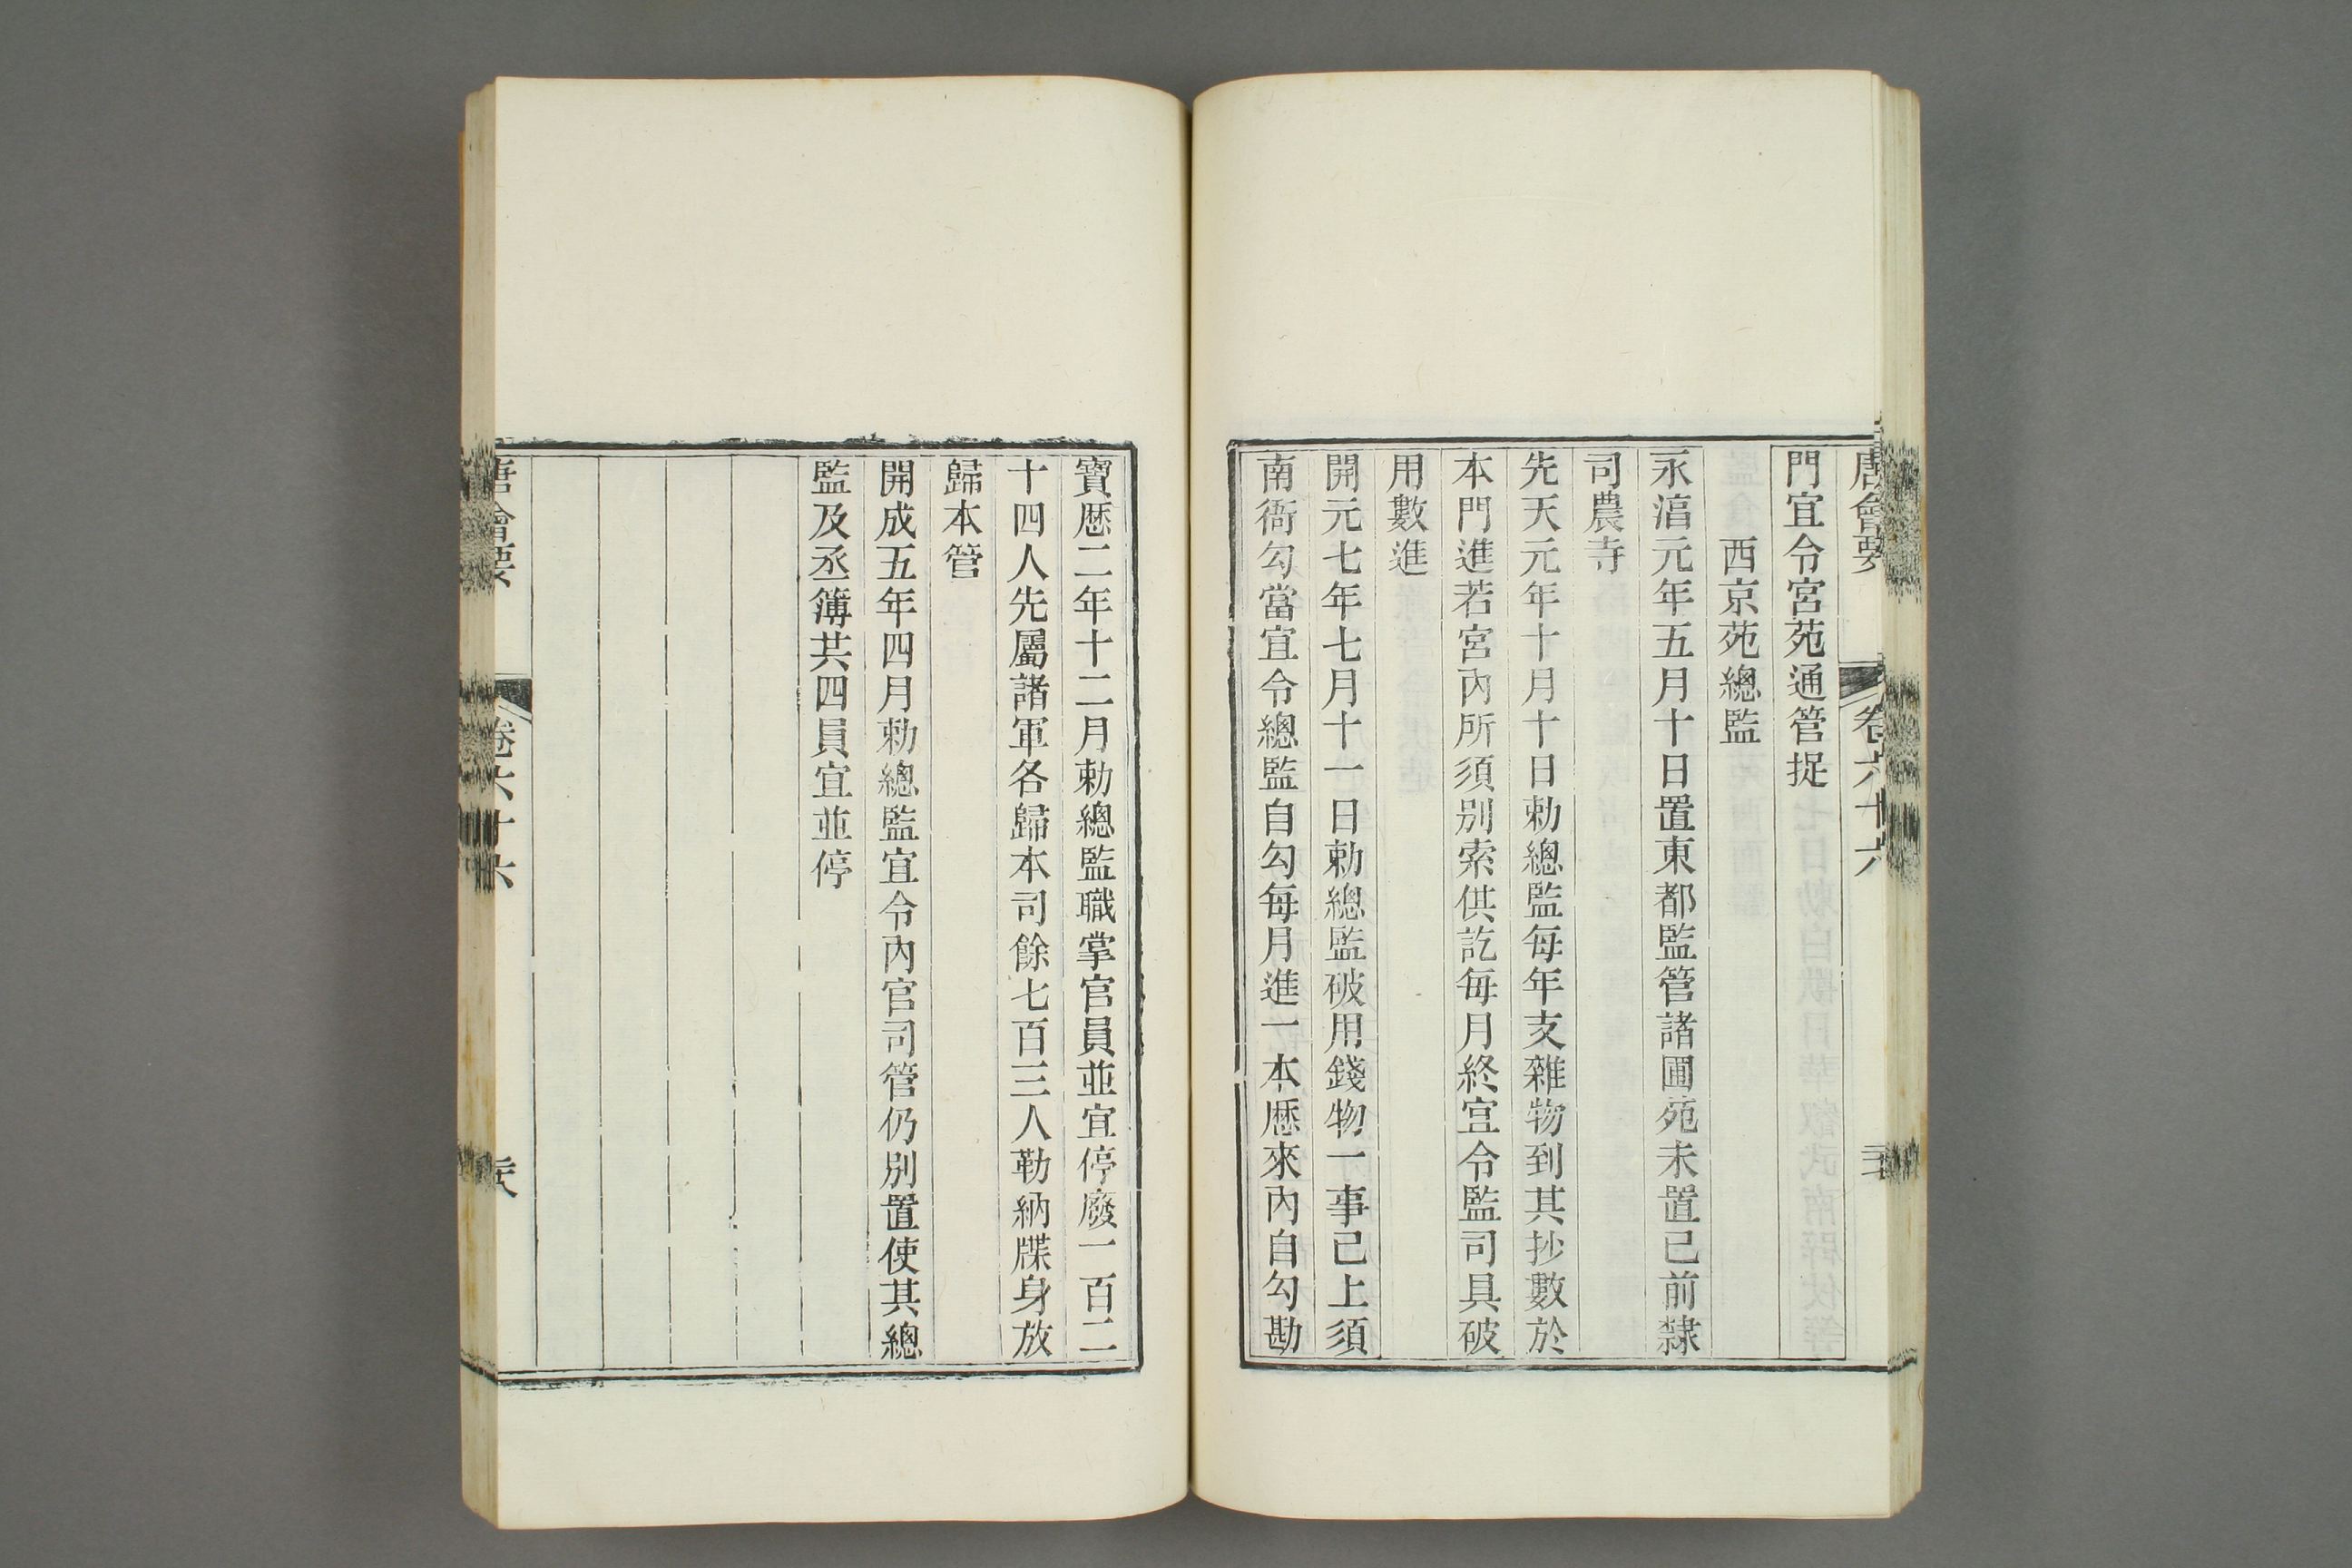 唐會要 卷六十六
門宜令宮苑通管捉
西京苑總監
永湻元年五月十日置東都監管諸圃苑未置已前隸
司農寺
先天元年十月十日勅總監每年支雜物到其抄數於
本門進若宮內所須別索供訖每月終宣令監司具破
用數進
開元七年七月十一日勅總監破用錢物一事已上須
南衙勾當宜令總監自勾每月進一本歷來內自勾勘
寶歷二年十二月勅總監職掌官員並宜停廢一百二
十四人先屬諸軍各歸本司餘七百三人勒納牒身放
歸本管
開成五年四月勅總監宜令內官司管仍別置使其總
監及丞簿共四員宜並停
唐會要 卷六十六